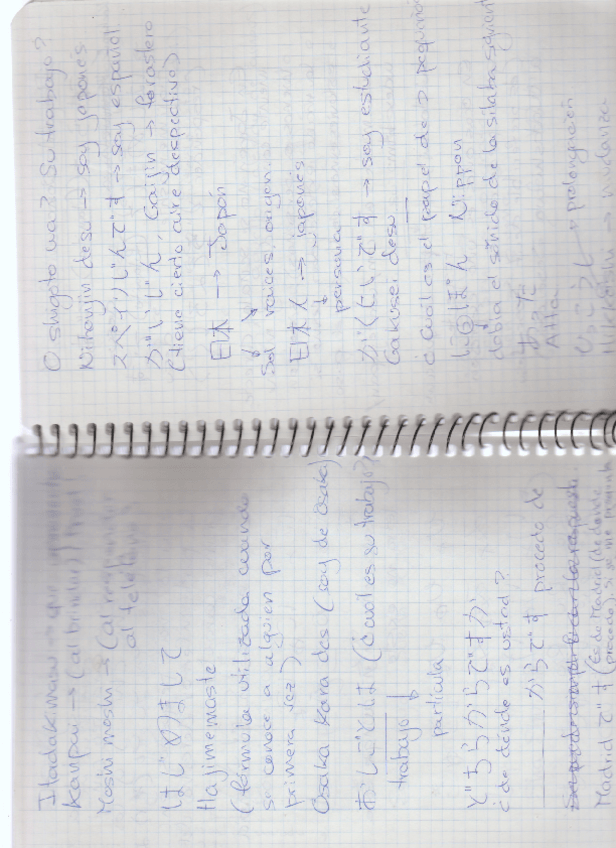 Itadakimasu → que aproveche
Kanpai → (al brindar)
Moshi moshi → (al responder
al teléfono)
はじめまして
Hajimemaste
(fórmula utilizada cuando
se conoce a alguien por
primera vez)
Osaka kara des (soy de Osaka)
おしごとは (¿cuál es su trabajo?)
trabajo
partícula
どちらからですか
¿de dónde es usted?
からです procedo de
Madrid です (Es de Madrid (de donde
procedo),
O shigoto wa? Su trabajo?
Nihonjin desu → soy japonés
スペインじんです → soy español
がいじん, Gaijin → forastero
(tiene cierto aire despectivo)
日本 → Japón
Sol raíces, origen
日本人 → japonés
persona
がくせいです → soy estudiante
Gakusei desu
¿Cuál es el papel de っ pequeño?
にっぽん Nippon
dobla el sonido de la sílaba siguiente
あった
Atta
→ prolongación